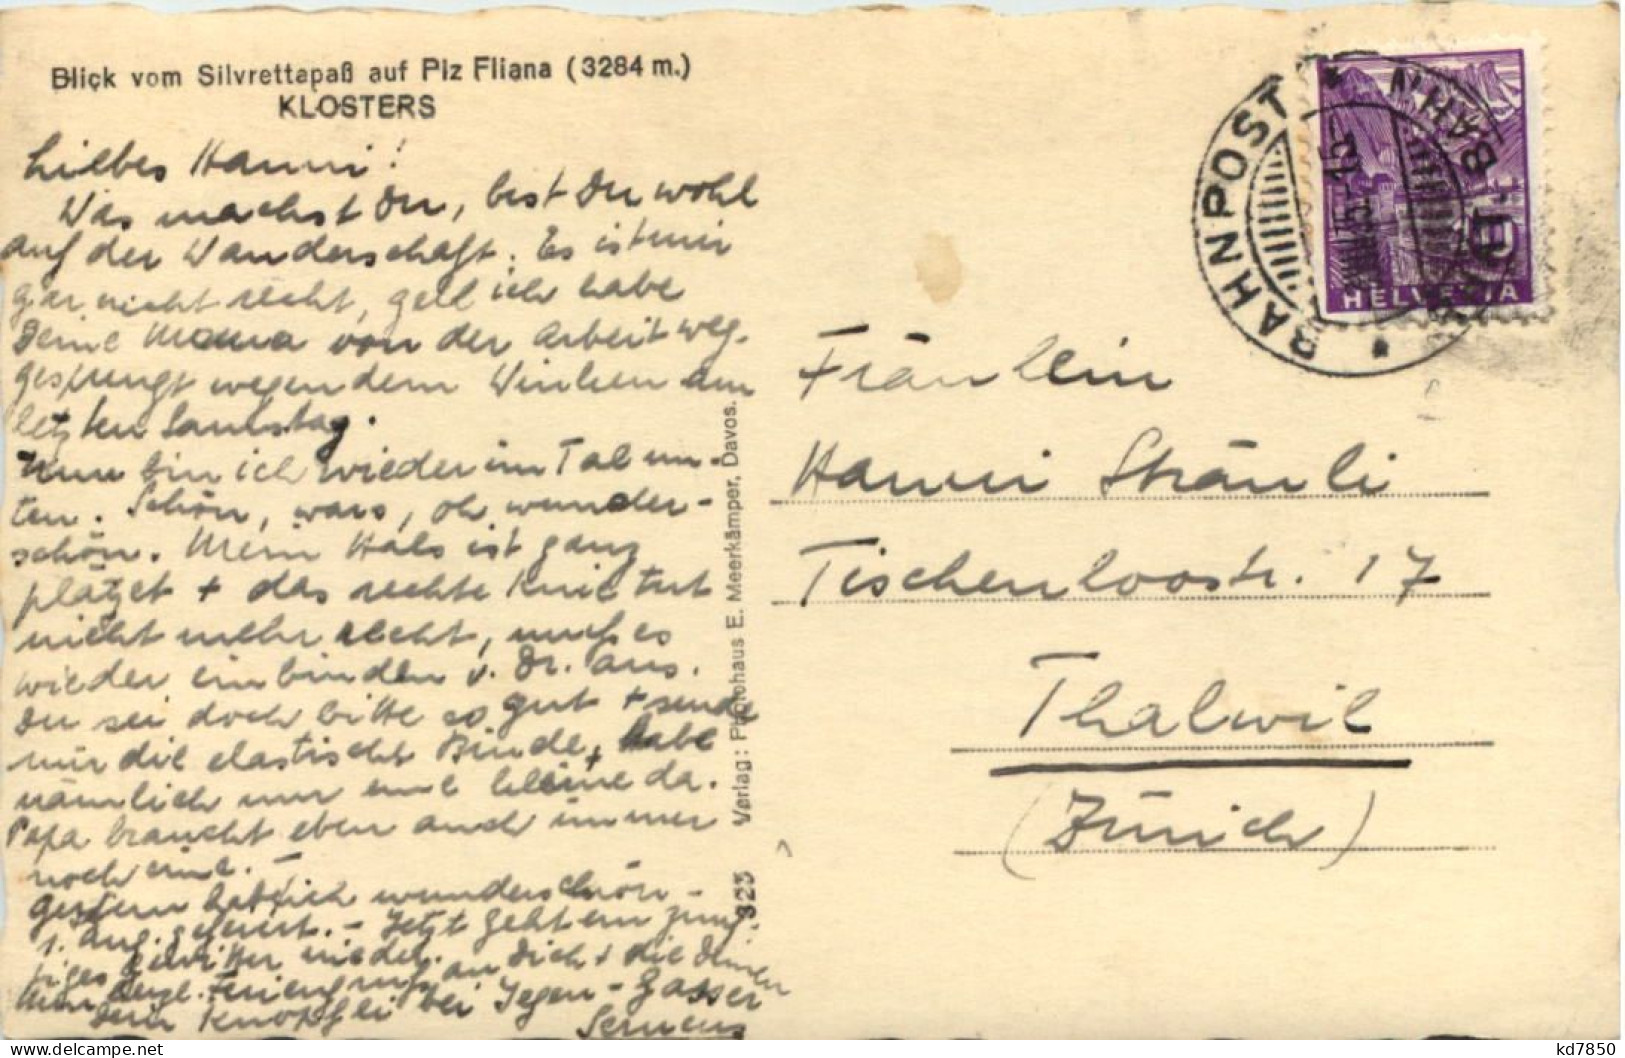 Blick vom Silvrettapaß auf Piz Fliana (3284 m.)
KLOSTERS
Liebes Hanni!
Was machst Du, bist Du wohl
auf der Wanderschaft. Es ist mir
gar nicht recht, gell ich habe
Deine Mama von der Arbeit weg-
gesprengt wegen dem Winken am
letzten Samstag.
Nun bin ich wieder im Tal un-
ten. Schön, wars, oh wunder-
schön. Mein Hals ist ganz
plätzet + das rechte Knie tut
nicht mehr recht, muß es
wieder einbinden v. Dr. aus.
Du sei doch bitte so gut + sende
mir die elastische Binde, habe
nämlich nur eine kleine da.
Papa braucht eben auch immer
noch eine. –
Gestern hab ich wunderschön
1. Aug. gefeiert. – Jetzt geht ein
Gewitter nieder.
Feriengruß an Dich + die Deinen
Dein Knöpfli bei Jegen-Gasser
Serneus
Verlag: Photohaus E. Meerkämper, Davos.
323
BAHNPOST
HELVETIA
Fräulein
Hanni Sträuli
Tischenloostr. 17
Thalwil
(Zürich)
kd7850